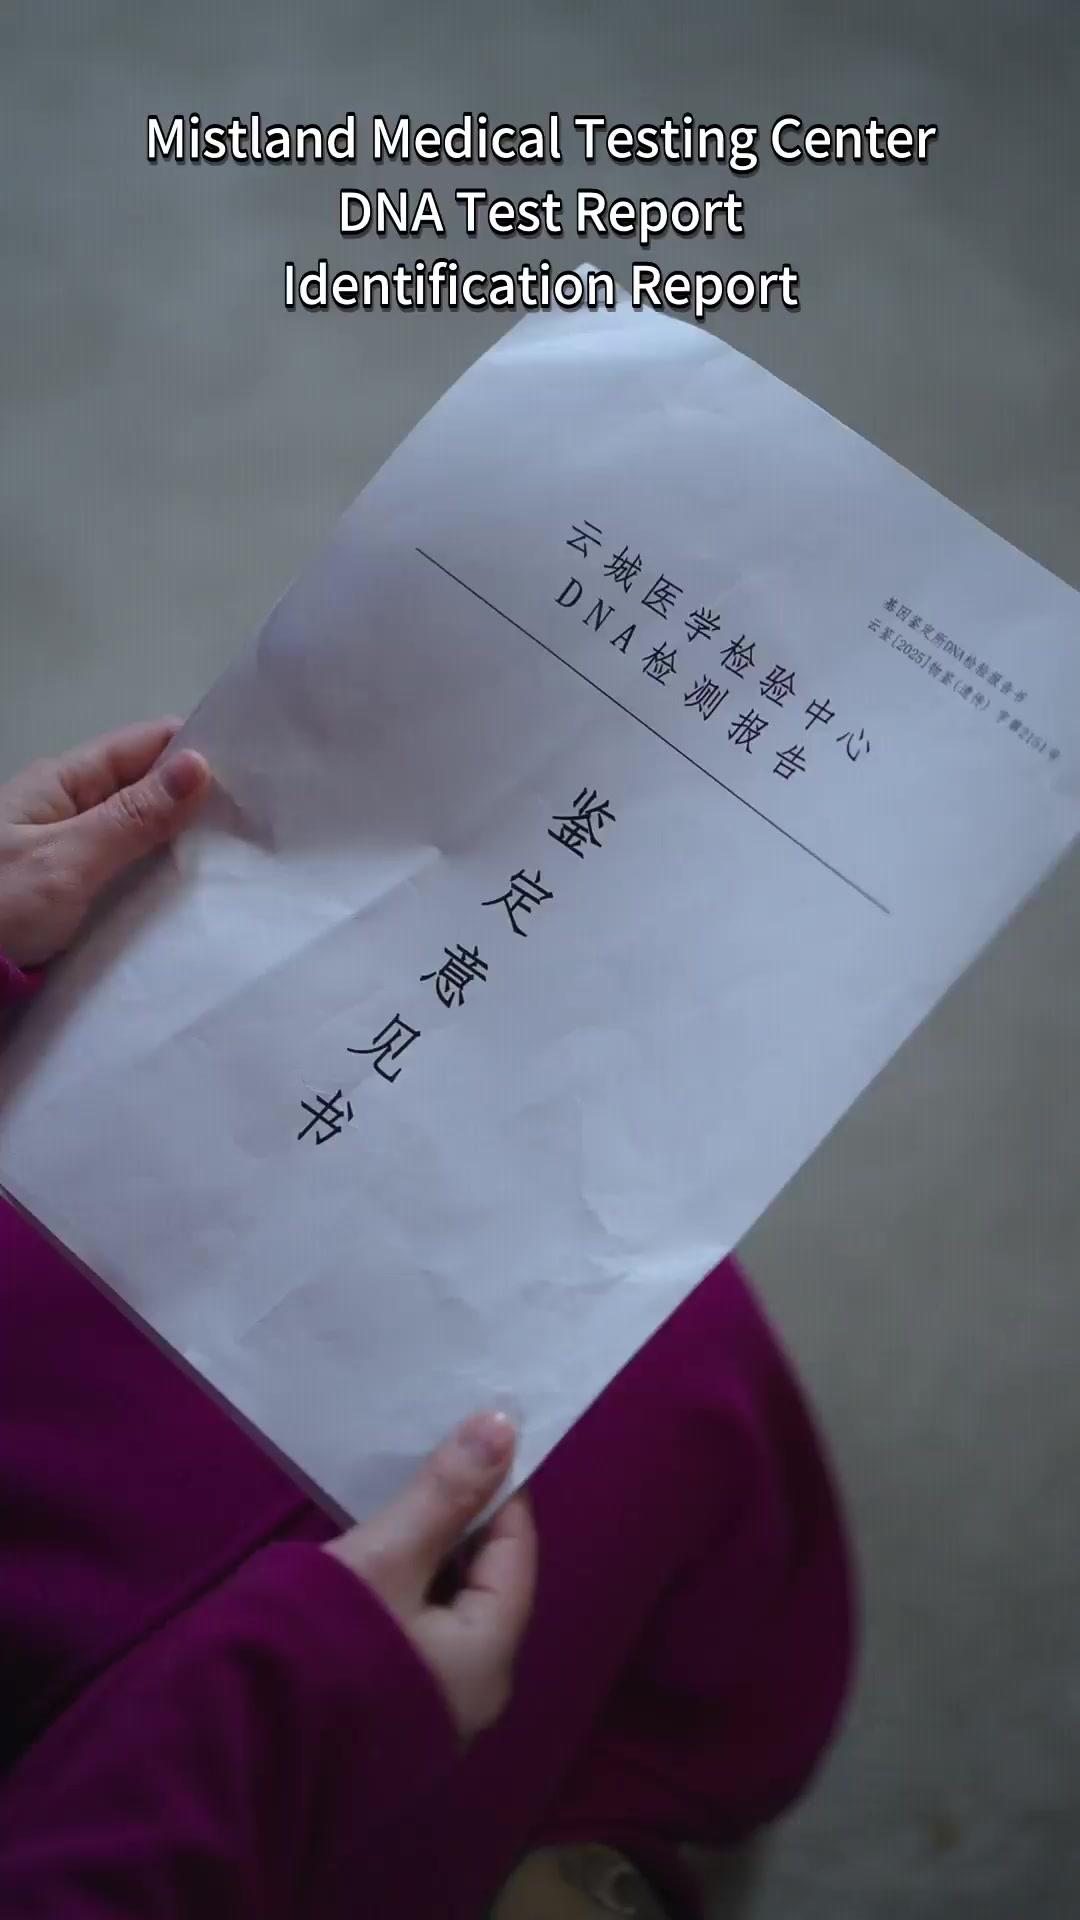 Mistland Medical Testing Center
DNA Test Report
Identification Report
基因鉴定所DNA检验报告书
云鉴[2025]物鉴(遗传)字第2151号
云城医学检验中心
DNA检测报告
鉴定意见书